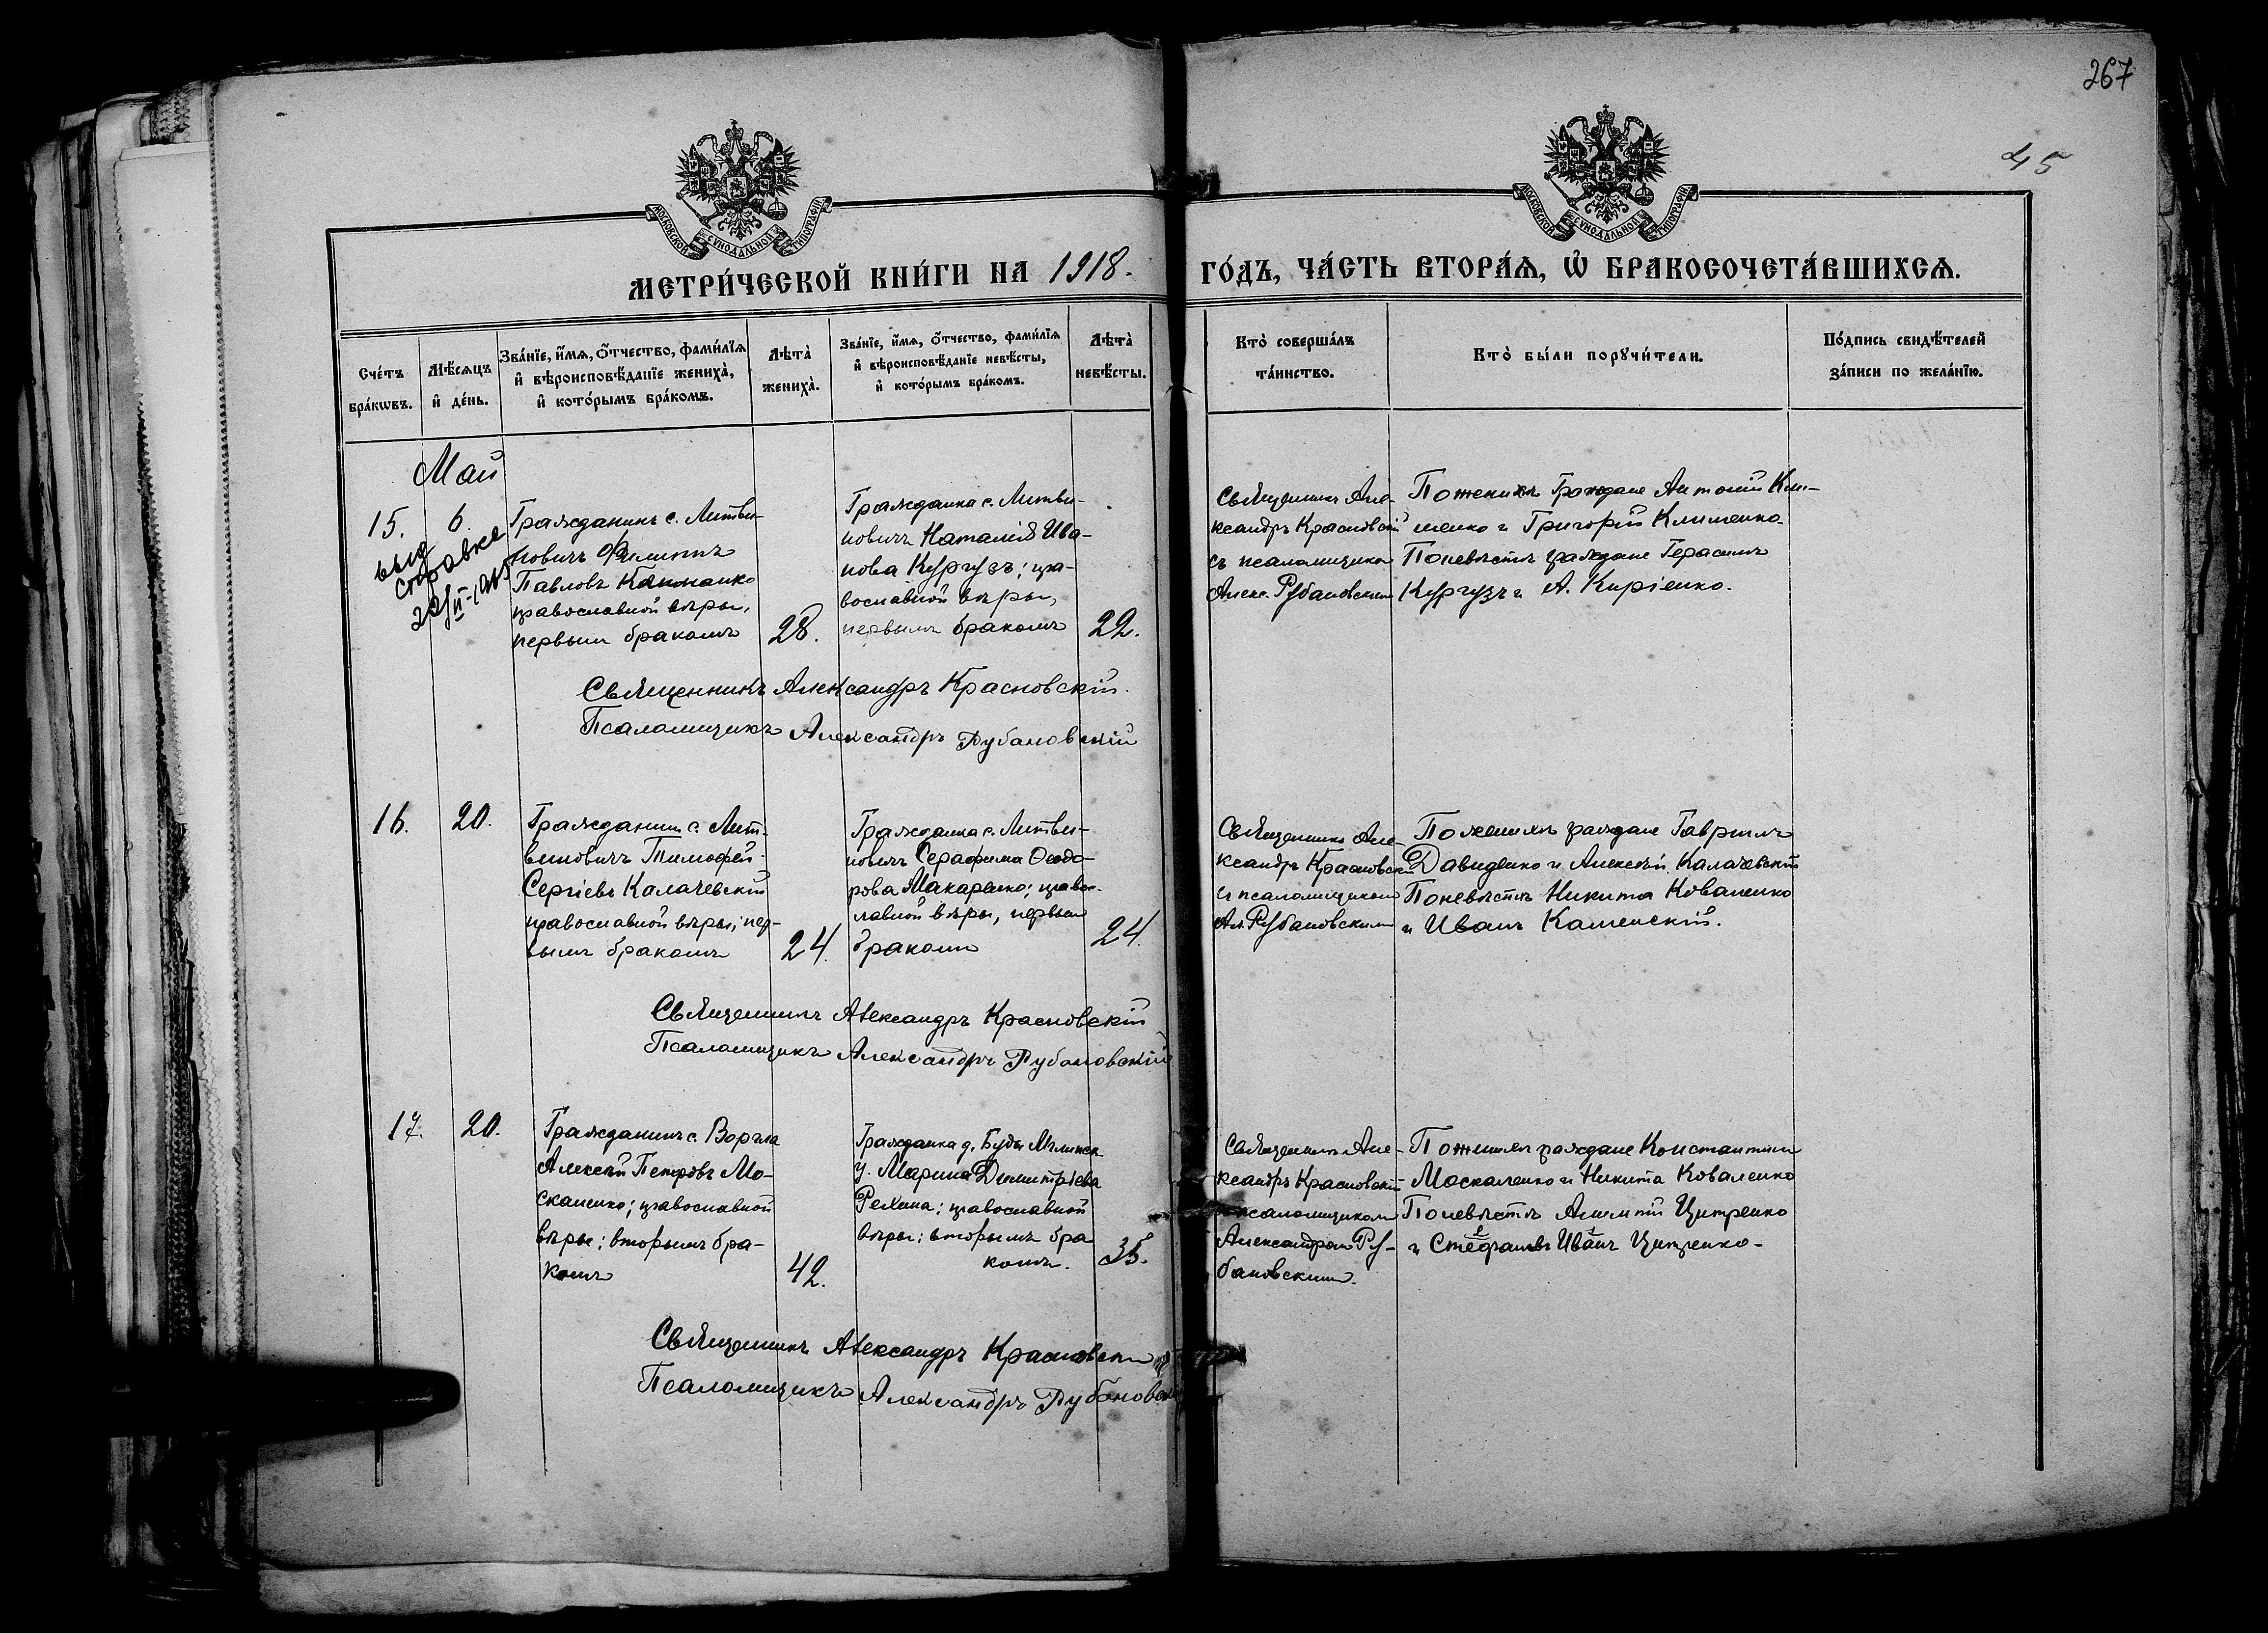 267
45
МОСКОВСКОЙ СѴНОДАЛЬНОЙ ТИПОГРАФІИ
МОСКОВСКОЙ СѴНОДАЛЬНОЙ ТИПОГРАФІИ
МЕТРИ́ЧЕСКОЙ КНИ́ГИ НА 1918.
ГО́ДЪ, ЧА́СТЬ ВТОРА́Ѧ, Ѽ БРАКОСОЧЕТА́ВШИХСѦ.
Сче́тъ бра́кѡвъ.
Мѣ́сѧцъ и҆ де́нь.
Зва́нїе, и҆́мѧ, ѻ҆́тчество, фами́лїѧ
и҆ вѣроисповѣ́данїе жениха̀,
и҆ кото́рымъ бра́комъ.
Лѣта̀ жениха̀.
Зва́нїе, и҆́мѧ, ѻ҆́тчество, фами́лїѧ
и҆ вѣроисповѣ́данїе невѣ́сты,
и҆ кото́рымъ бра́комъ.
Лѣта̀ невѣ́сты.
Кто̀ соверша́лъ
та́инство.
Кто̀ бы́ли порꙋчи́тели.
По́дпись свидѣ́телей
за́писи по жела́нїю.
Май
15.
6.
выд
справке
Гражданинъ с. Литви-
новичъ Филиппъ
Павловъ
православной вѣры,
первым бракомъ
28.
Гражданка с. Литви-
новичъ Наталія Ива-
нова Кургузъ; пра-
вославной вѣры,
первымъ бракомъ
22.
Священникъ Але-
ксандръ Красновскій
съ псаломщиком
Алекс. Рубановским
По женихѣ Граждане Антоній Кли-
менко и Григорій Клименко.
По невѣстѣ граждане Герасимъ
Кургузъ и А. Киріенко.
Священникъ Александръ Красновскій.
Псаломщикъ Александръ Рубановскій
16.
20.
Гражданин с. Лит-
виновичъ Тимофей
Сергіевъ Калачевскій
православной вѣры; пер-
вымъ бракомъ
24.
Гражданка с. Литви-
новичъ Серафима Ѳеодо-
рова Макаренко; правос-
лавной вѣры, первым
браком
24.
Священникъ Але-
ксандръ Красновскій
съ псаломщиком
Ал. Рубановским
По женихѣ граждане Гавріилъ
Давиденко и Алексѣй Калачевскій
По невѣстѣ Никита Коваленко
и Иванъ Каменскій.
Священникъ Александръ Красновскій
Псаломщикъ Александръ Рубановскій
17.
20.
Гражданинъ с. Воргла
Алексѣй Петровъ Мо-
скаленко; православной
вѣры; вторымъ бра-
комъ
42.
Гражданка д. Буды Мглинск
у. Марина Димитріева
православной
вѣры; вторымъ бра
комъ.
35.
Священникъ Але-
ксандръ Красновскій
псаломщиком
Александром Ру-
бановским.
По женихѣ граждане Константин
Москаленко и Никита Коваленко
По невѣстѣ Цитренко
и Стефановъ Иванъ Цитренко.
Священникъ Александръ Красновскій
Псаломщикъ Александръ Рубановскі